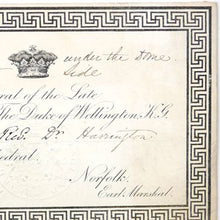 under the Dome
side
ral of the Late
The Duke of Wellington, K.G.
Rev. Dr. Harrington
edral.
Norfolk.
Earl Marshal.